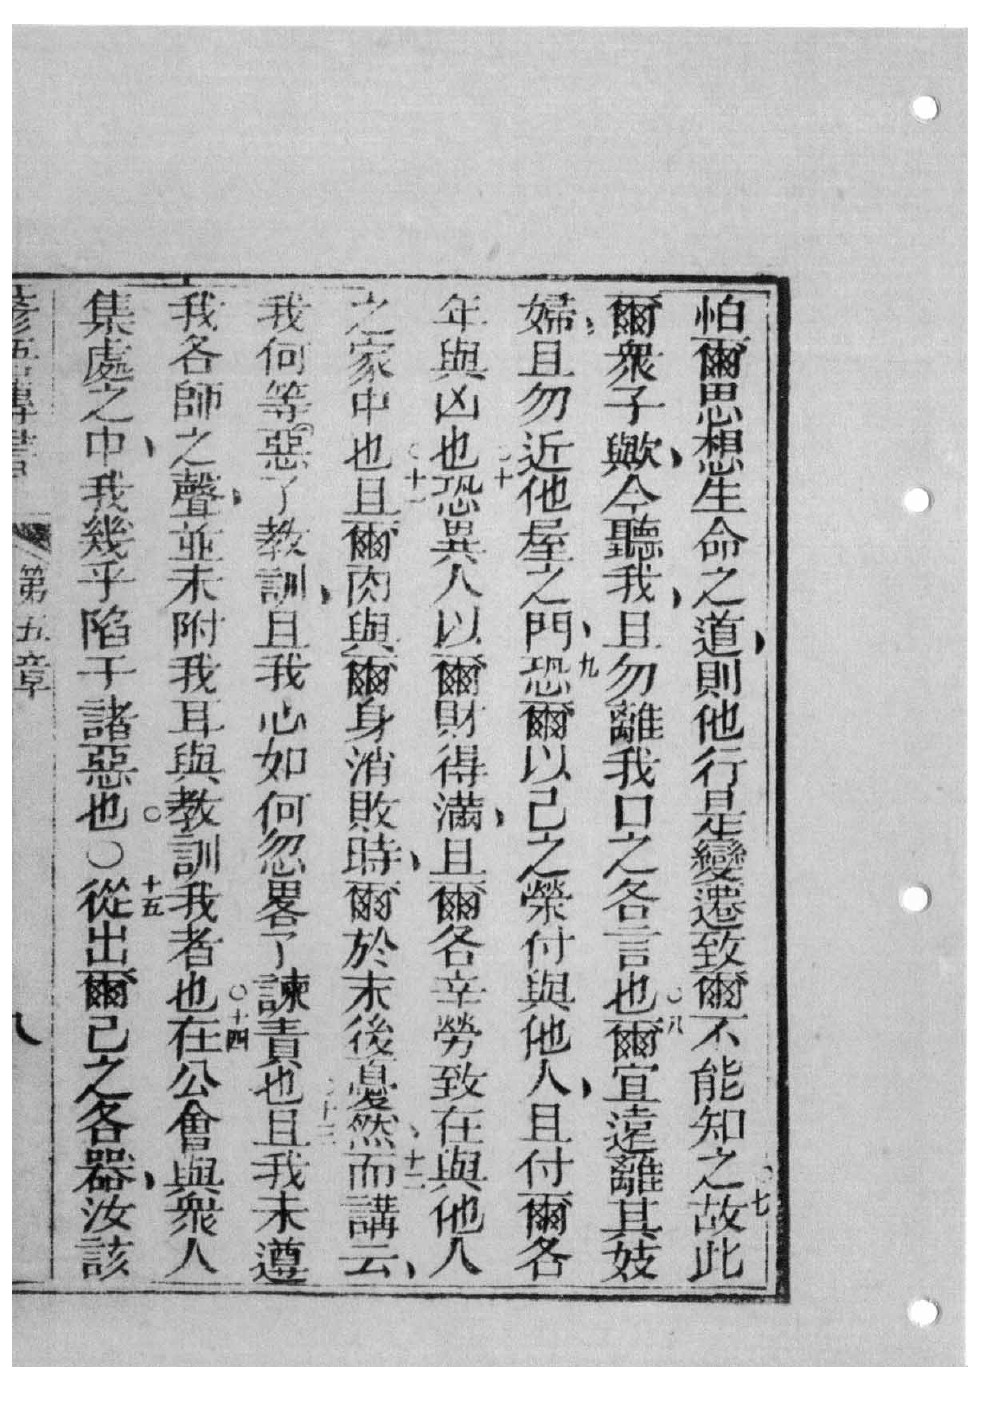 怕爾思想生命之道則他行是變遷致爾不能知之七故此
爾衆子歟今聽我且勿離我口之各言也八爾宜遠離其妓
婦且勿近他屋之門九恐爾以己之榮付與他人且付爾各
年與凶也十恐異人以爾財得滿且爾各辛勞致在與他人
之家中也十一且爾肉與爾身消敗時爾於末後憂然十二而講云
我何等惡了教訓且我心如何忽畧了諫責也十三且我未遵
我各師之聲並未附我耳與教訓我者也○十四在公會與衆人
集處之中我幾乎陷于諸惡也○○十五從出爾己之各器汝該
第五章
八